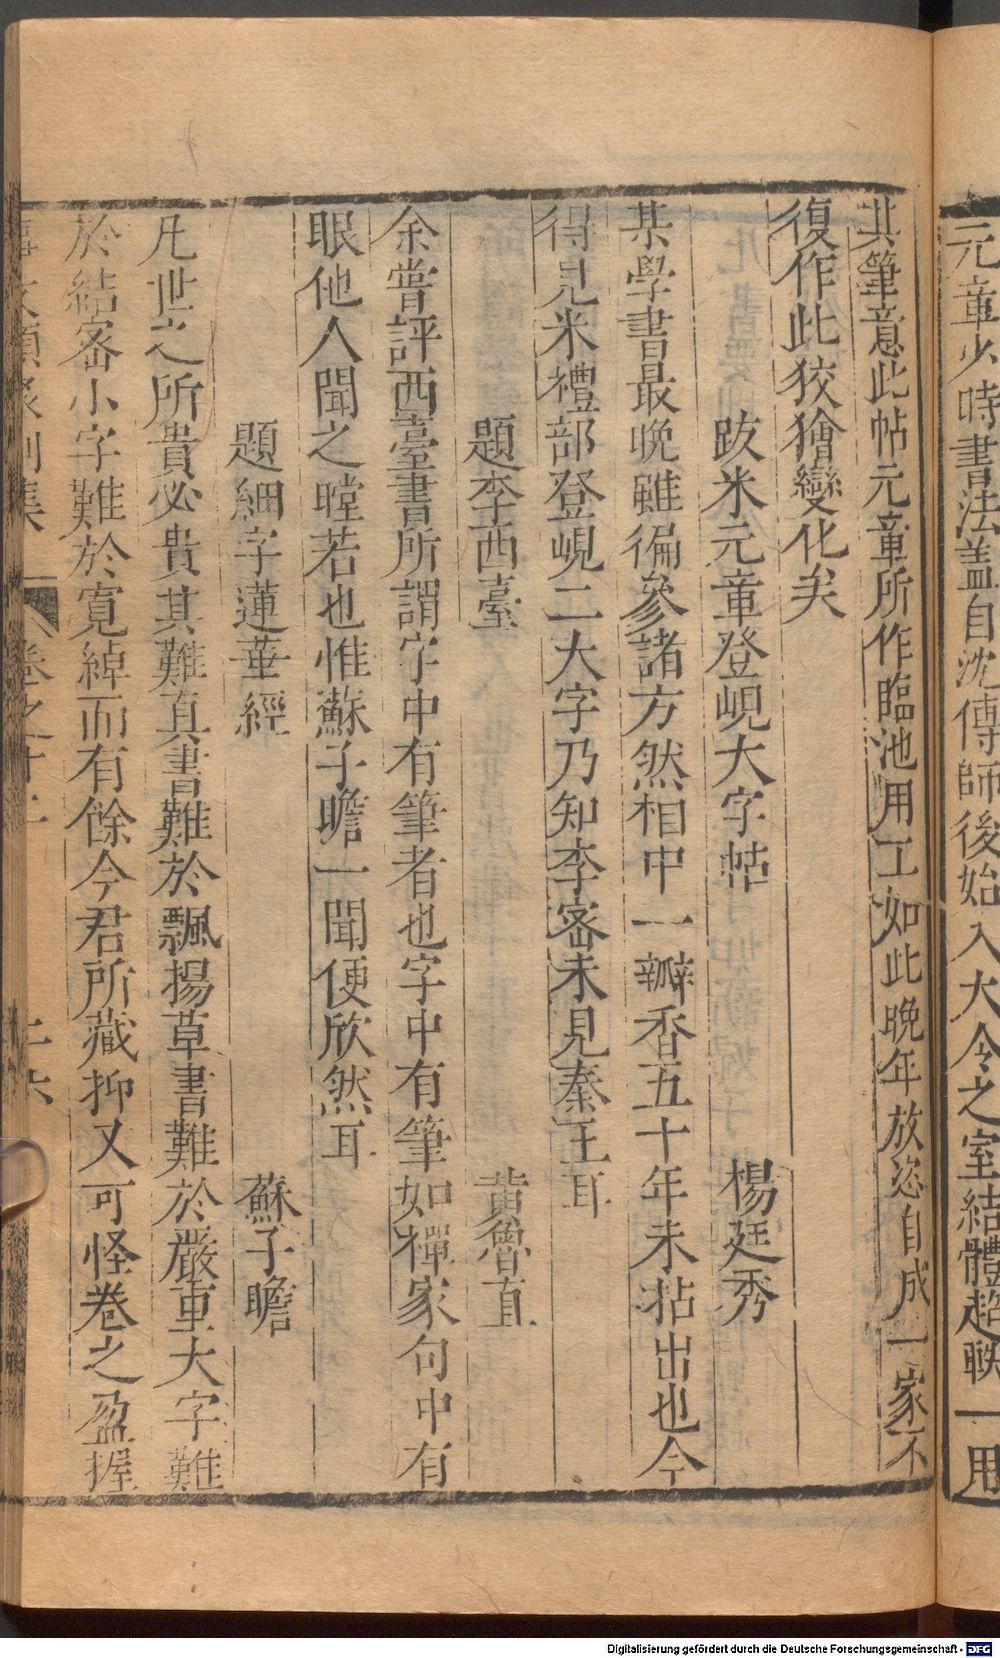 元章少時書法蓋自沈傳師後始入大令之室結體超軼一用
其筆意此帖元章所作臨池用工如此晚年放恣自成一家不
復作此狡獪變化矣
跋米元章登峴大字帖 楊廷秀
某學書最晚雖徧參諸方然相中一瓣香五十年未拈出也今
得見米禮部登峴二大字乃知李密未見秦王耳
題李西臺 黄魯直
余嘗評西臺書所謂字中有筆者也字中有筆如禪家句中有
眼他人聞之瞠若也惟蘇子瞻一聞便欣然耳
題細字蓮華經 蘇子瞻
凡世之所貴必貴其難真書難於飄揚草書難於嚴重大字難
於結密小字難於寬綽而有餘今君所藏抑又可怪卷之盈握
事文類聚別集 卷之十二
Digitalisierung gefördert durch die Deutsche Forschungsgemeinschaft - DFG